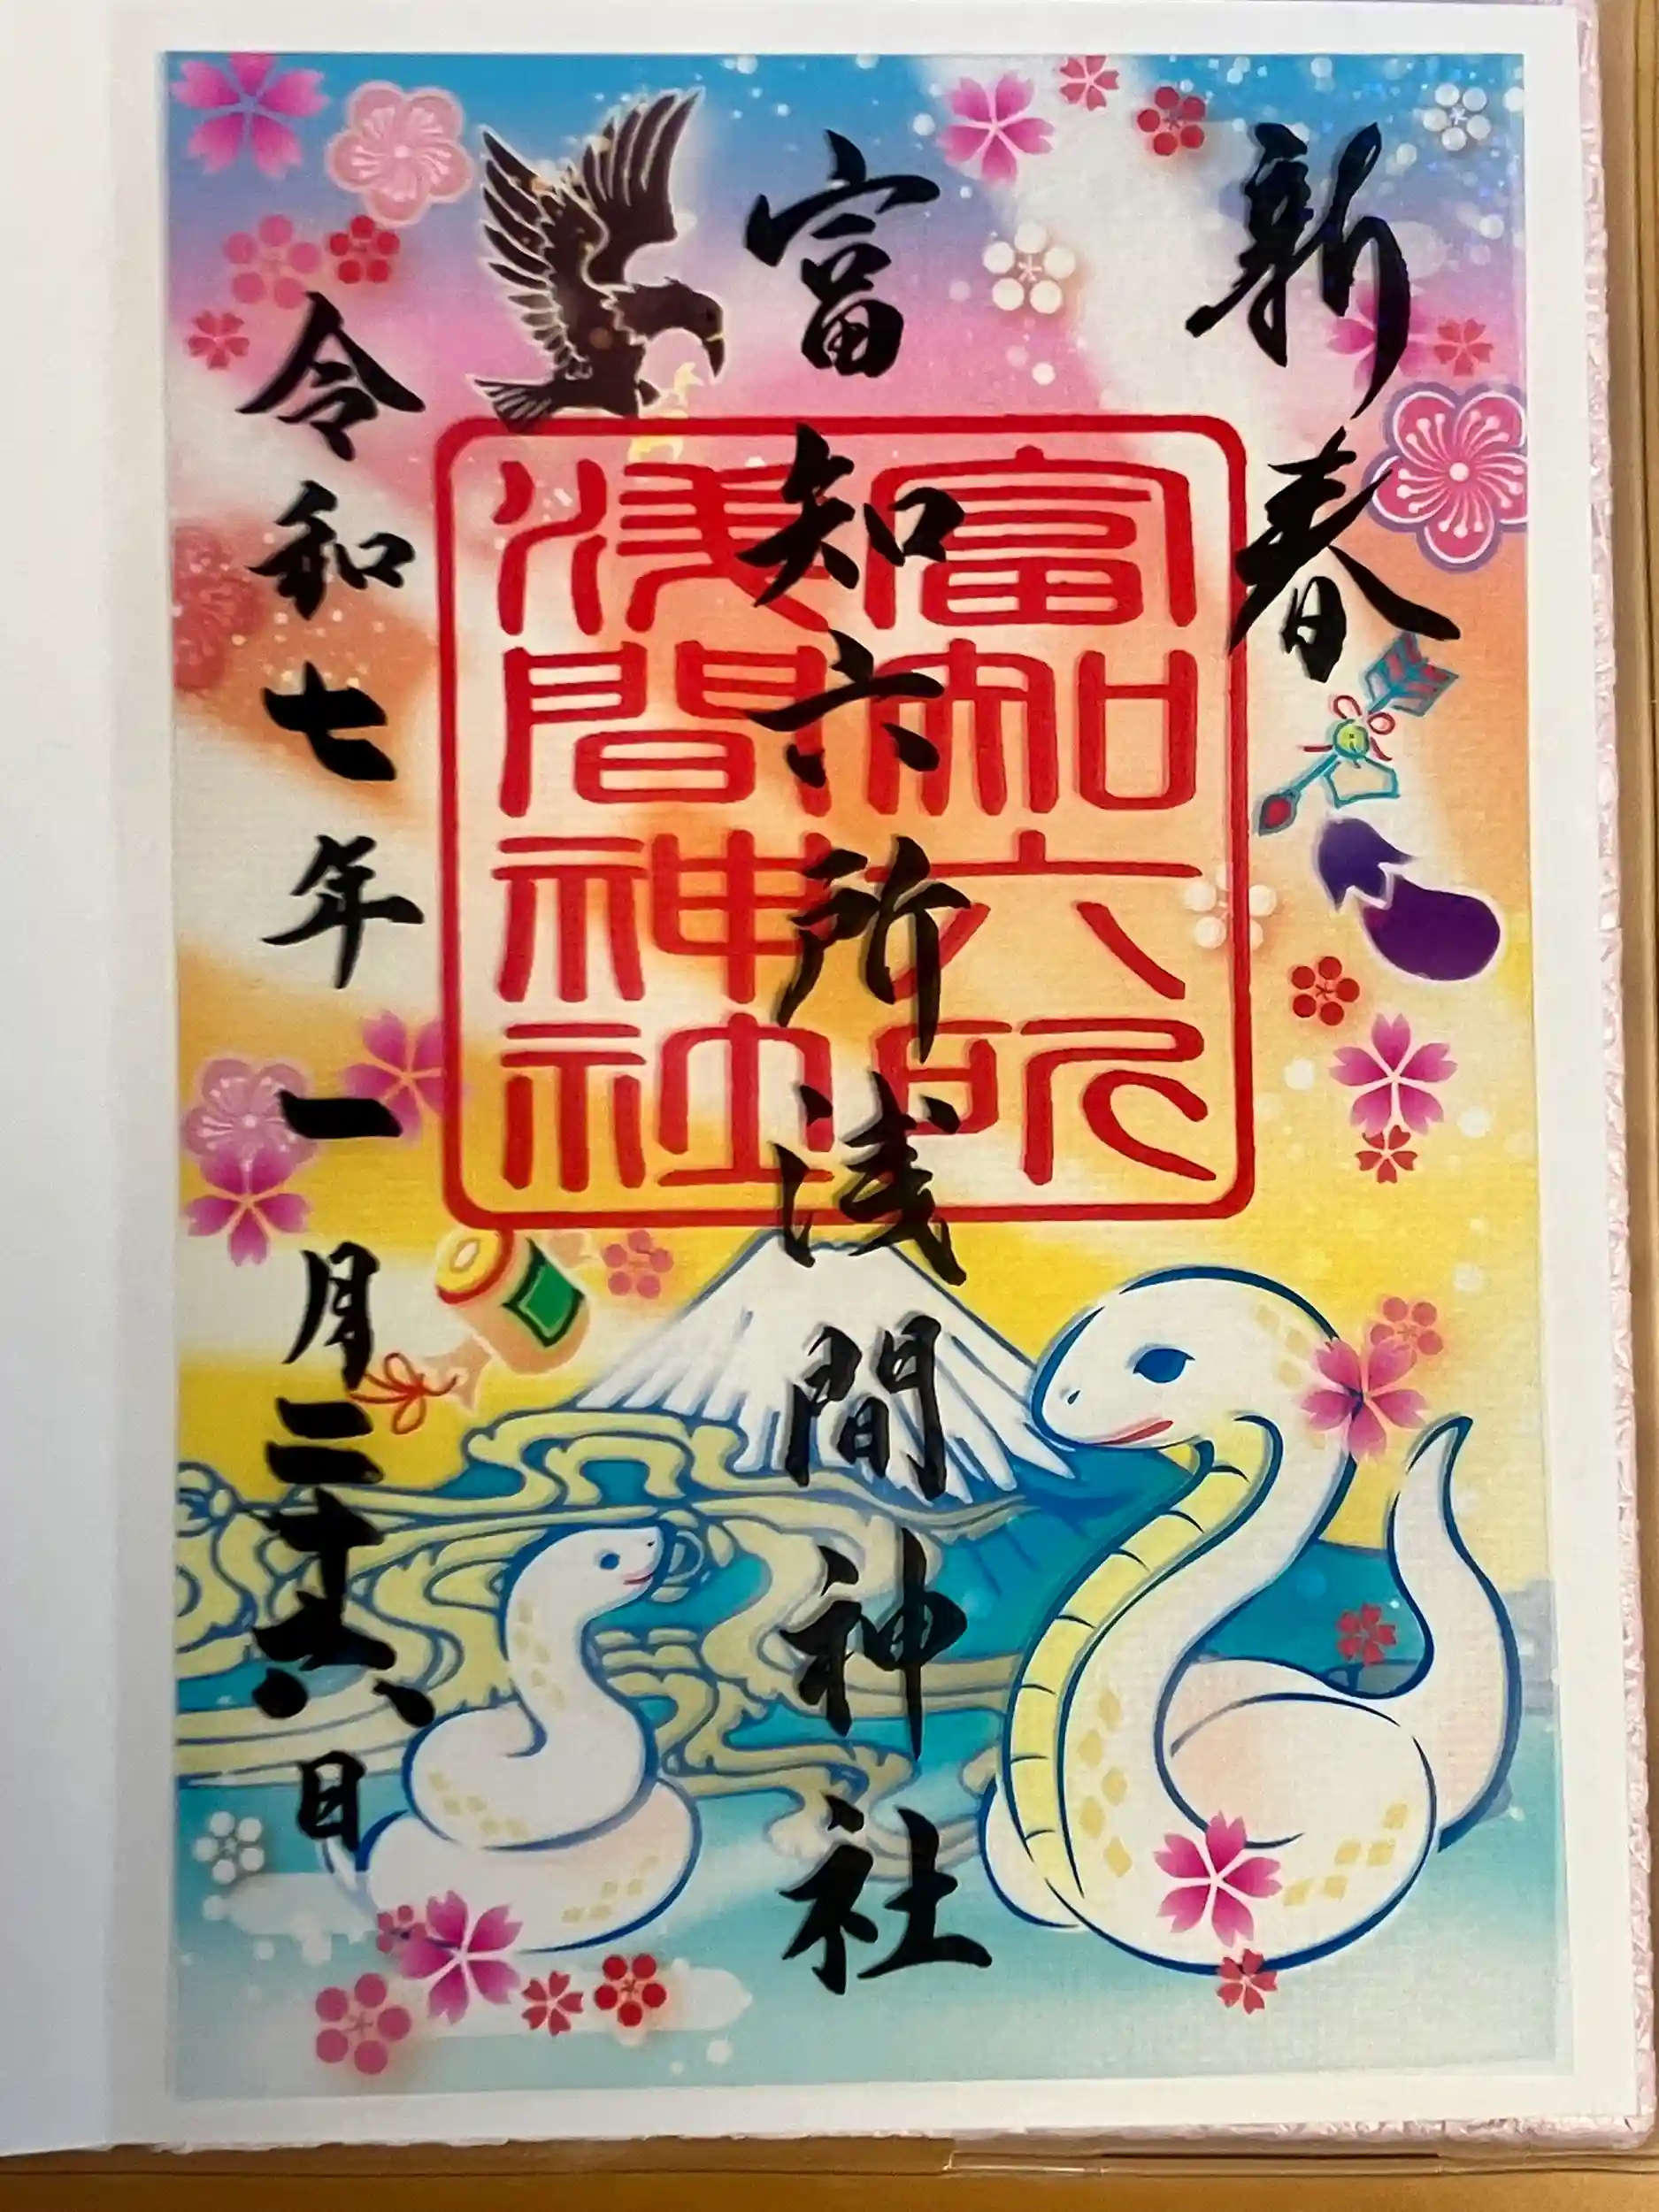 新春
富知六所浅間神社
富知六所
浅間神社
令和七年一月二十六日